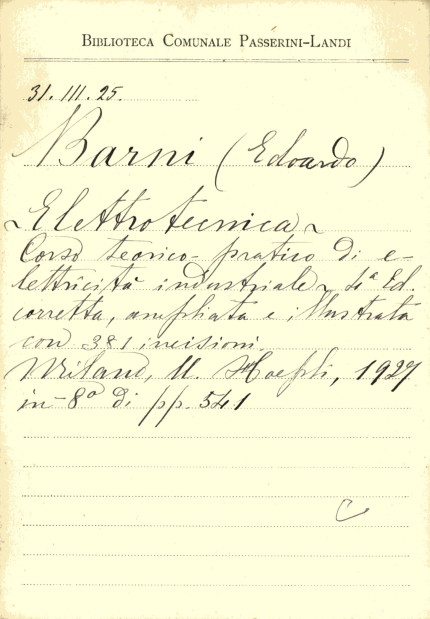 BIBLIOTECA COMUNALE PASSERINI-LANDI
31. III. 25.
Barni (Edoardo)
~ Elettrotecnica ~
Corso teorico-pratico di e-
lettricità industriale ~ 4ª Ed.
corretta, ampliata e illustrata
con 381 incisioni.
Milano, U. Hoepli, 1927
in-8º di pp. 541